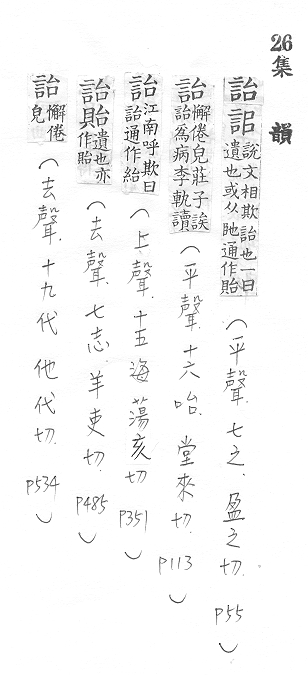 26集韻
詒䛊 說文相欺詒也一曰遺也或从㐌通作貽 (平聲. 七之. 盈之切. P55)
詒 懈倦皃莊子誒詒爲病李軌讀 (平聲. 十六咍. 堂來切. P113)
詒 江南呼欺曰詒通作紿 (上聲. 十五海 蕩亥切 P351)
詒貽 遺也亦作貽 (去聲. 七志. 羊吏切. P485)
詒 懈倦皃 (去聲. 十九代 他代切. P534)